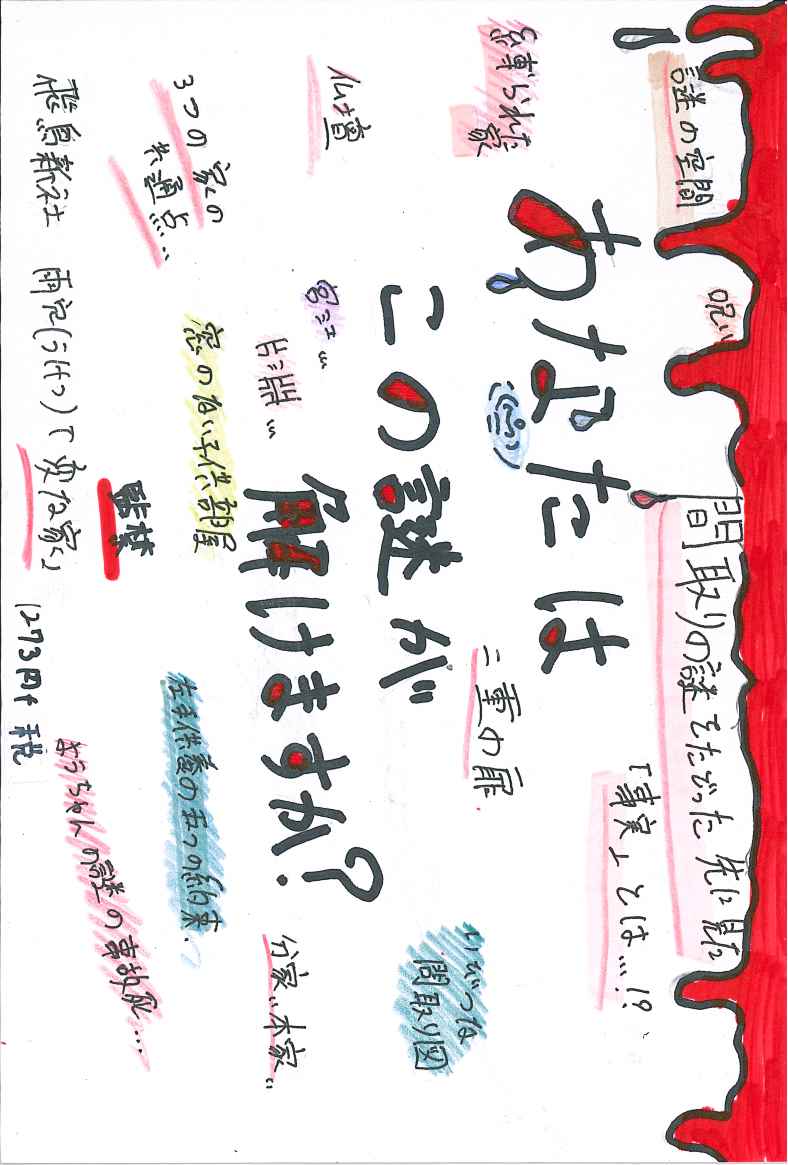 謎の空間
呪い
間取りの謎をたどった先に見た
「事実」とは…!?
縛られた家
あなたは
この謎が
解けますか?
二重の扉
いびつな
間取り図
仏壇
宮江…
片淵…
分家…本家…
3つの家の
共通点…
窓のない子供部屋
左手供養の五つの約束…
監禁
ようちゃんの謎の事故死…
飛鳥新社 雨穴(うけつ)「変な家」
1273円+税